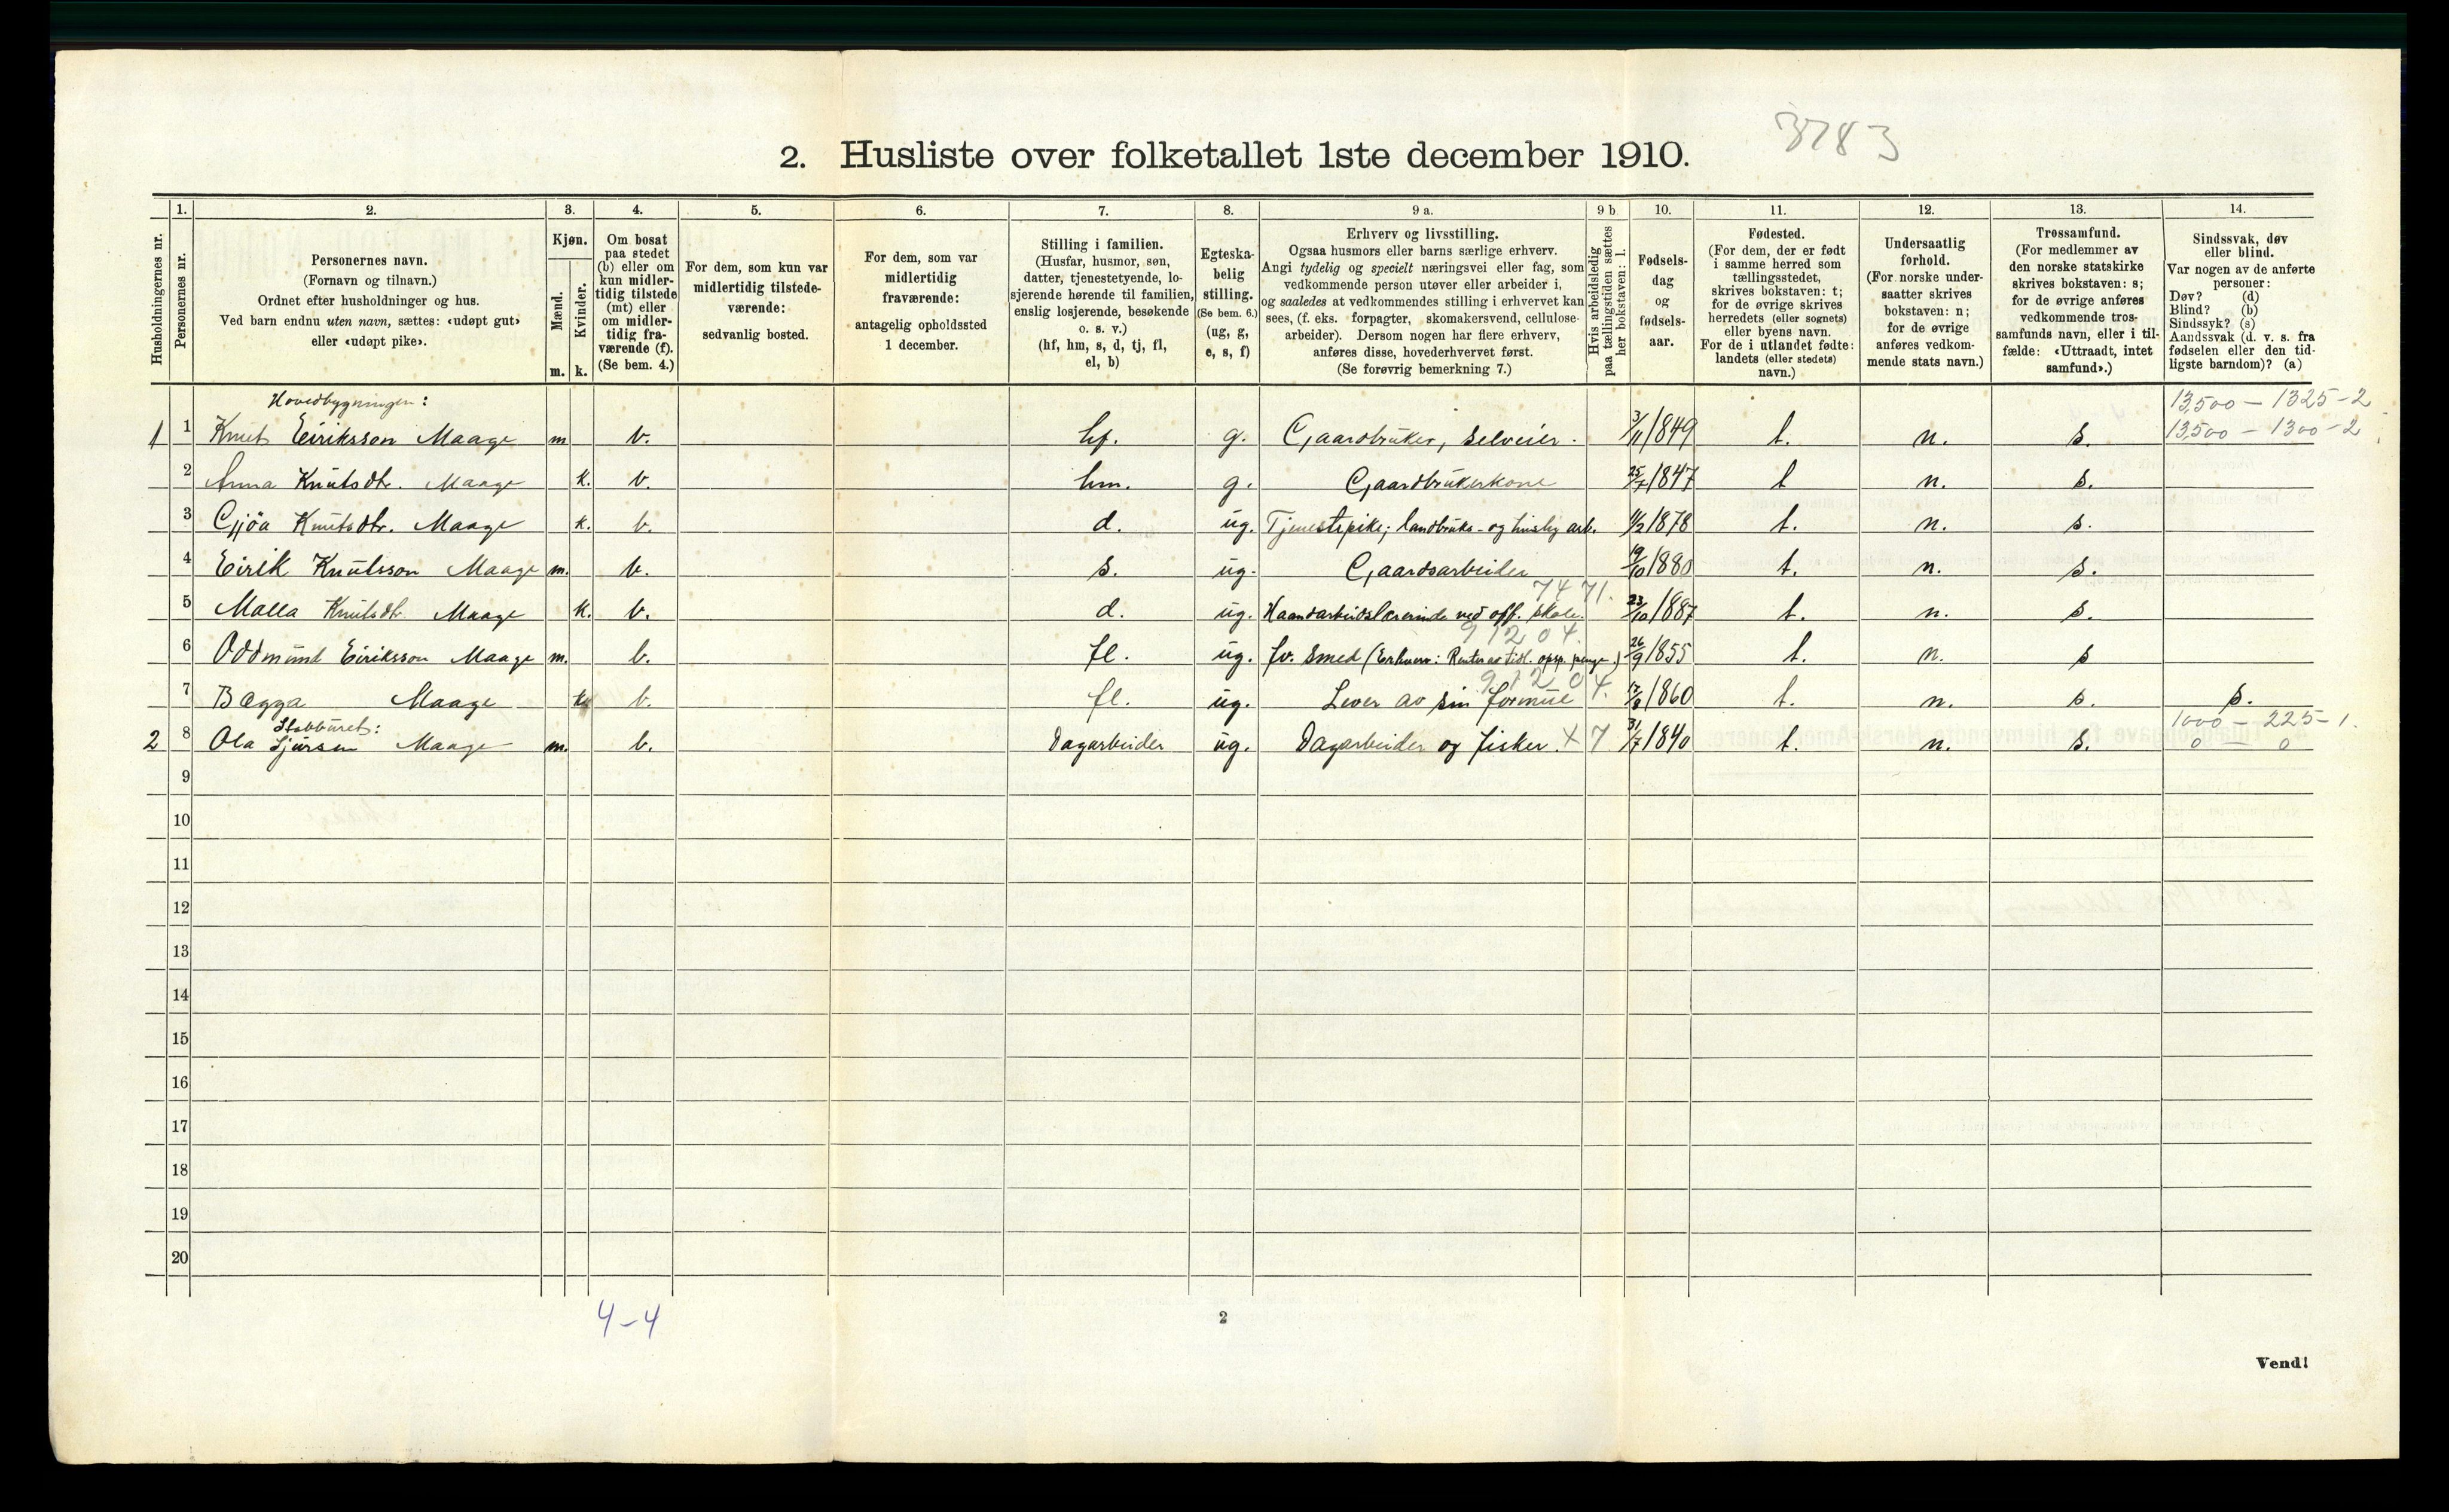 3783
2. Husliste over folketallet 1ste december 1910.
1. 2. 3. 4. 5. 6. 7. 8. 9 a. 9 b 10. 11. 12. 13. 14.
Husholdningernes nr.
Personernes nr.
Personernes navn.
(Fornavn og tilnavn.)
Ordnet efter husholdninger og hus.
Ved barn endnu uten navn, sættes: «udøpt gut»
eller «udøpt pike».
Kjøn.
Mænd.
Kvinder.
m. k.
Om bosat
paa stedet
(b) eller om
kun midler-
tidig tilstede
(mt) eller
om midler-
tidig fra-
værende (f).
(Se bem. 4.)
For dem, som kun var
midlertidig tilstede-
værende:
sedvanlig bosted.
For dem, som var
midlertidig
fraværende:
antagelig opholdssted
1 december.
Stilling i familien.
(Husfar, husmor, søn,
datter, tjenestetyende, lo-
sjerende hørende til familien,
enslig losjerende, besøkende
o. s. v.)
(hf, hm, s, d, tj, fl,
el, b)
Egteska-
belig
stilling.
(Se bem. 6.)
(ug, g,
e, s, f)
Erhverv og livsstilling.
Ogsaa husmors eller barns særlige erhverv.
Angi tydelig og specielt næringsvei eller fag, som
vedkommende person utøver eller arbeider i,
og saaledes at vedkommendes stilling i erhvervet kan
sees, (f. eks. forpagter, skomakersvend, cellulose-
arbeider). Dersom nogen har flere erhverv,
anføres disse, hovederhvervet først.
(Se forøvrig bemerkning 7.)
Hvis arbeidsledig
paa tællingstiden sættes
her bokstaven: l.
Fødsels-
dag
og
fødsels-
aar.
Fødested.
(For dem, der er født
i samme herred som
tællingsstedet,
skrives bokstaven: t;
for de øvrige skrives
herredets (eller sognets)
eller byens navn.
For de i utlandet fødte:
landets (eller stedets)
navn.)
Undersaatlig
forhold.
(For norske under-
saatter skrives
bokstaven: n;
for de øvrige
anføres vedkom-
mende stats navn.)
Trossamfund.
(For medlemmer av
den norske statskirke
skrives bokstaven: s;
for de øvrige anføres
vedkommende tros-
samfunds navn, eller i til-
fælde: «Uttraadt, intet
samfund».)
Sindssvak, døv
eller blind.
Var nogen av de anførte
personer:
Døv? (d)
Blind? (b)
Sindssyk? (s)
Aandssvak (d. v. s. fra
fødselen eller den tid-
ligste barndom)? (a)
Hovedbygningen:
13,500 - 1325-2
1 1 Knut Eiriksson Maage m b. hf. g. Gaardbruker, selveier. 3/11 1849 t. n. s. 13,500 - 1300-2
2 Anna Knutsdtr. Maage k. b. hm. g. Gaardbrukerkone 25/7 1847 t n. s.
3 Gjöa Knutsdtr. Maage k. b. d. ug. Tjenestepike; landbruks- og husly arb. 1878 t. n. s.
4 Eirik Knutsson Maage m. b. s. ug. Gaardsarbeider 19/10 1880 t. n. s.
7471.
5 Malla Knutsdtr. Maage k. b. d. ug. Haandarbeidslærerinde ved off. skole. 23/10 1887 t. n. s.
91204.
6 Oddmund Eiriksson Maage m. b. fl. ug. fv. Smed (Erhverv: Renter av tidl. opsp. penge.) 26/9 1855 t. n. s
91204.
7 Bægga Maage k b. fl. ug. Lever av sin formue 1860 t. n. s. s.
Stabburet:
1000 - 225-1.
2 8 Ola Sjursen Maage m. b. Dagarbeider ug. Dagarbeider og fisker. X 7 31/7 1840 t. n. s. 0 - 0
9
10
11
12
13
14
15
16
17
18
19
20
4-4
2
Vend!